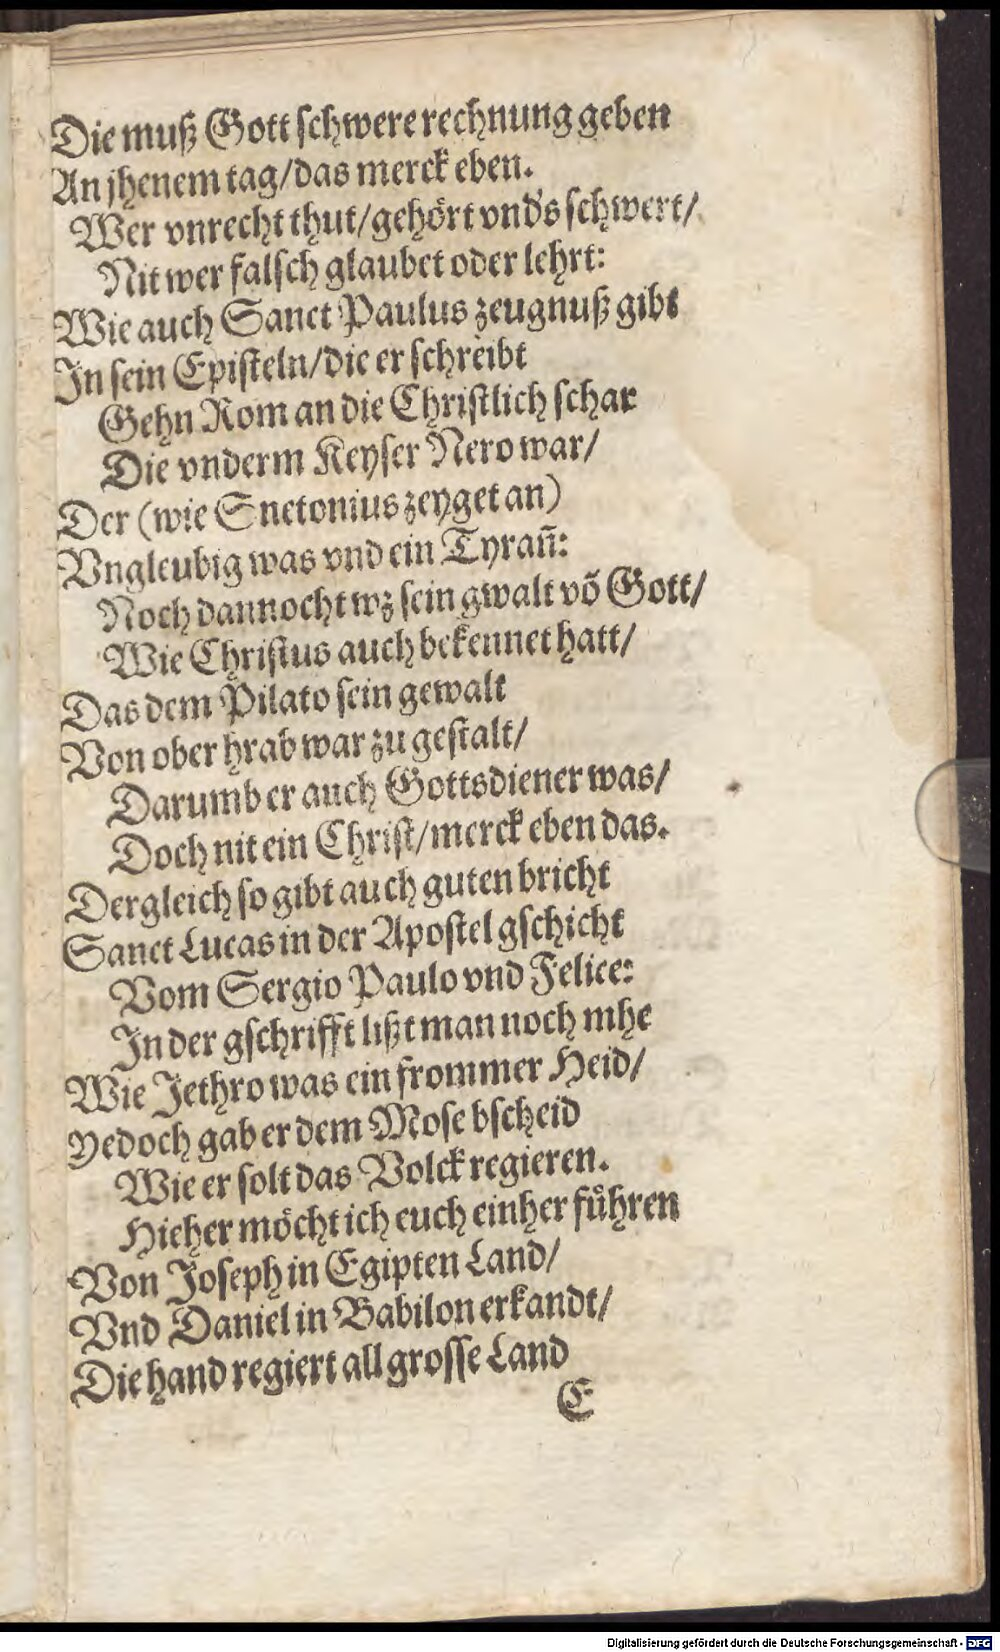 Die muß Gott schwere rechnung geben
An jhenem tag/das merck eben.
Wer vnrecht thut/gehört vnd's schwert/
Nit wer falsch glaubet oder lehrt:
Wie auch Sanct Paulus zeugnuß gibt
In sein Episteln/die er schreibt
Gehn Rom an die Christlich schar
Die vnderm Keyser Nero war/
Der (wie Snetonius zeyget an)
Vngleubig was vnd ein Tyrañ:
Noch dannocht wz sein gwalt võ Gott/
Wie Christus auch bekennet hatt/
Das dem Pilato sein gewalt
Von ober hrab war zu gestalt/
Darumb er auch Gottsdiener was/
Doch nit ein Christ/merck eben das.
Dergleich so gibt auch guten bricht
Sanct Lucas in der Apostel gschicht
Vom Sergio Paulo vnd Felice:
In der gschrifft lißt man noch mhe
Wie Jethro was ein frommer Heid/
Yedoch gab er dem Mose bscheid
Wie er solt das Volck regieren.
Hieher möcht ich euch einher führen
Von Joseph in Egipten Land/
Vnd Daniel in Babilon erkandt/
Die hand regiert all grosse Land
E
Digitalisierung gefördert durch die Deutsche Forschungsgemeinschaft - DFG